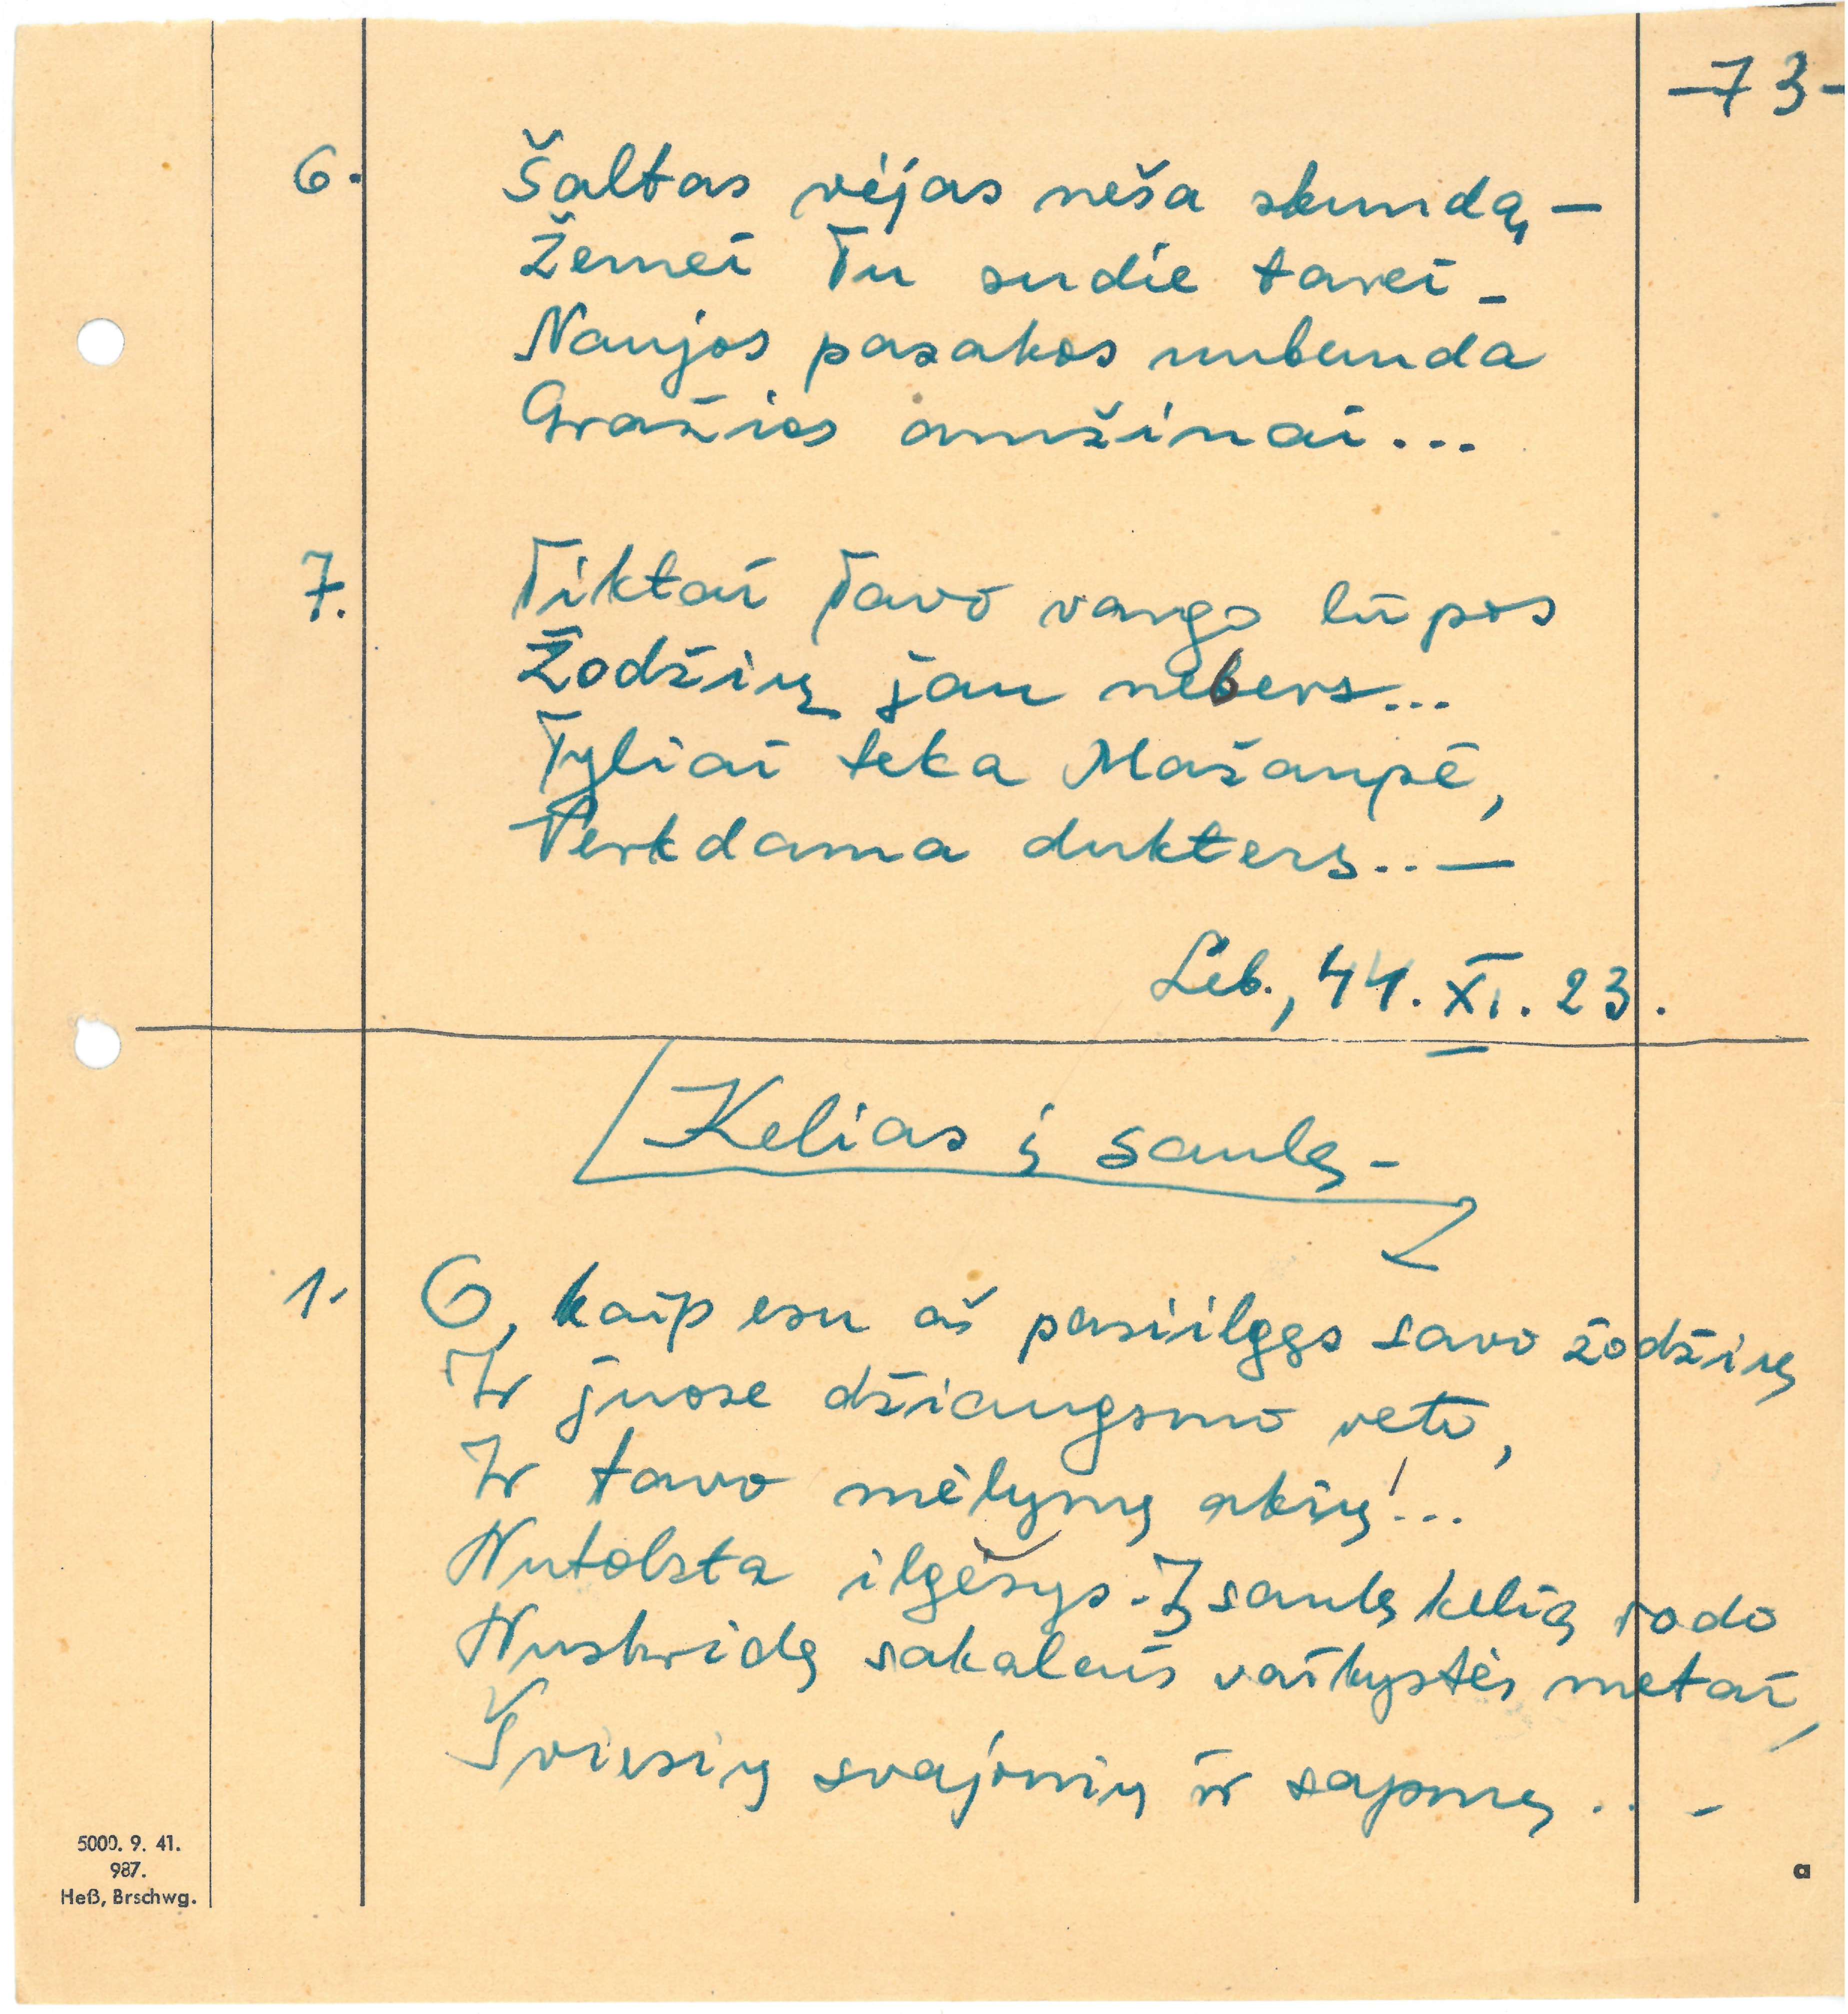 -73-
6. Šaltas vėjas neša skundą —
Žemei Tu sudie tarei -
Naujos pasakos nubunda
Gražios amžinai...
7. Tiktai Tavo vargo lūpos
Žodžių jau nebers...
Tyliai teka Mažaupė,
Verkdama dukters.. —
Leb., 44. XI. 23.
Kelias į saulę -
1. O, kaip esu aš pasiilgęs savo žodžių
Ir juose džiaugsmo veto,
Ir tavo mėlynų akių!...
Nutolsta ilgesys. Į saulę kelią rodo
Nuskridę sakalais vaikystės metai,
Šviesių svajonių ir sapnų.. -
5000. 9. 41.
987.
Heß, Brschwg.
a